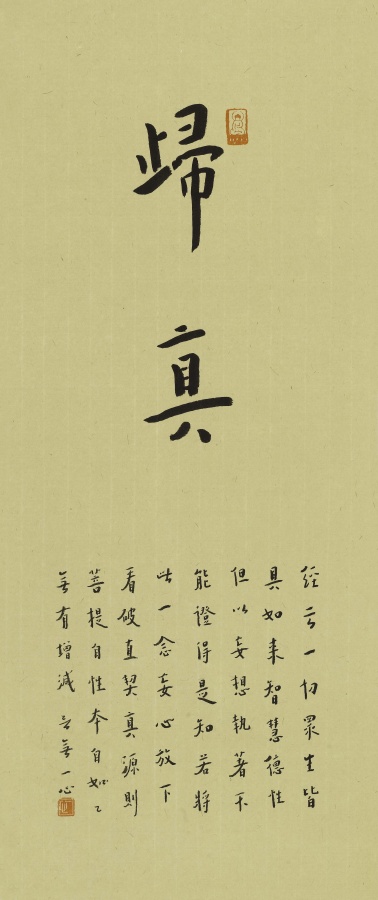 歸
真
經云一切眾生皆
具如来智慧德性
但以妄想執著不
能證得是知若將
此一念妄心放下
看破直契真源則
菩提自性本自如〻
無有增減 無一心